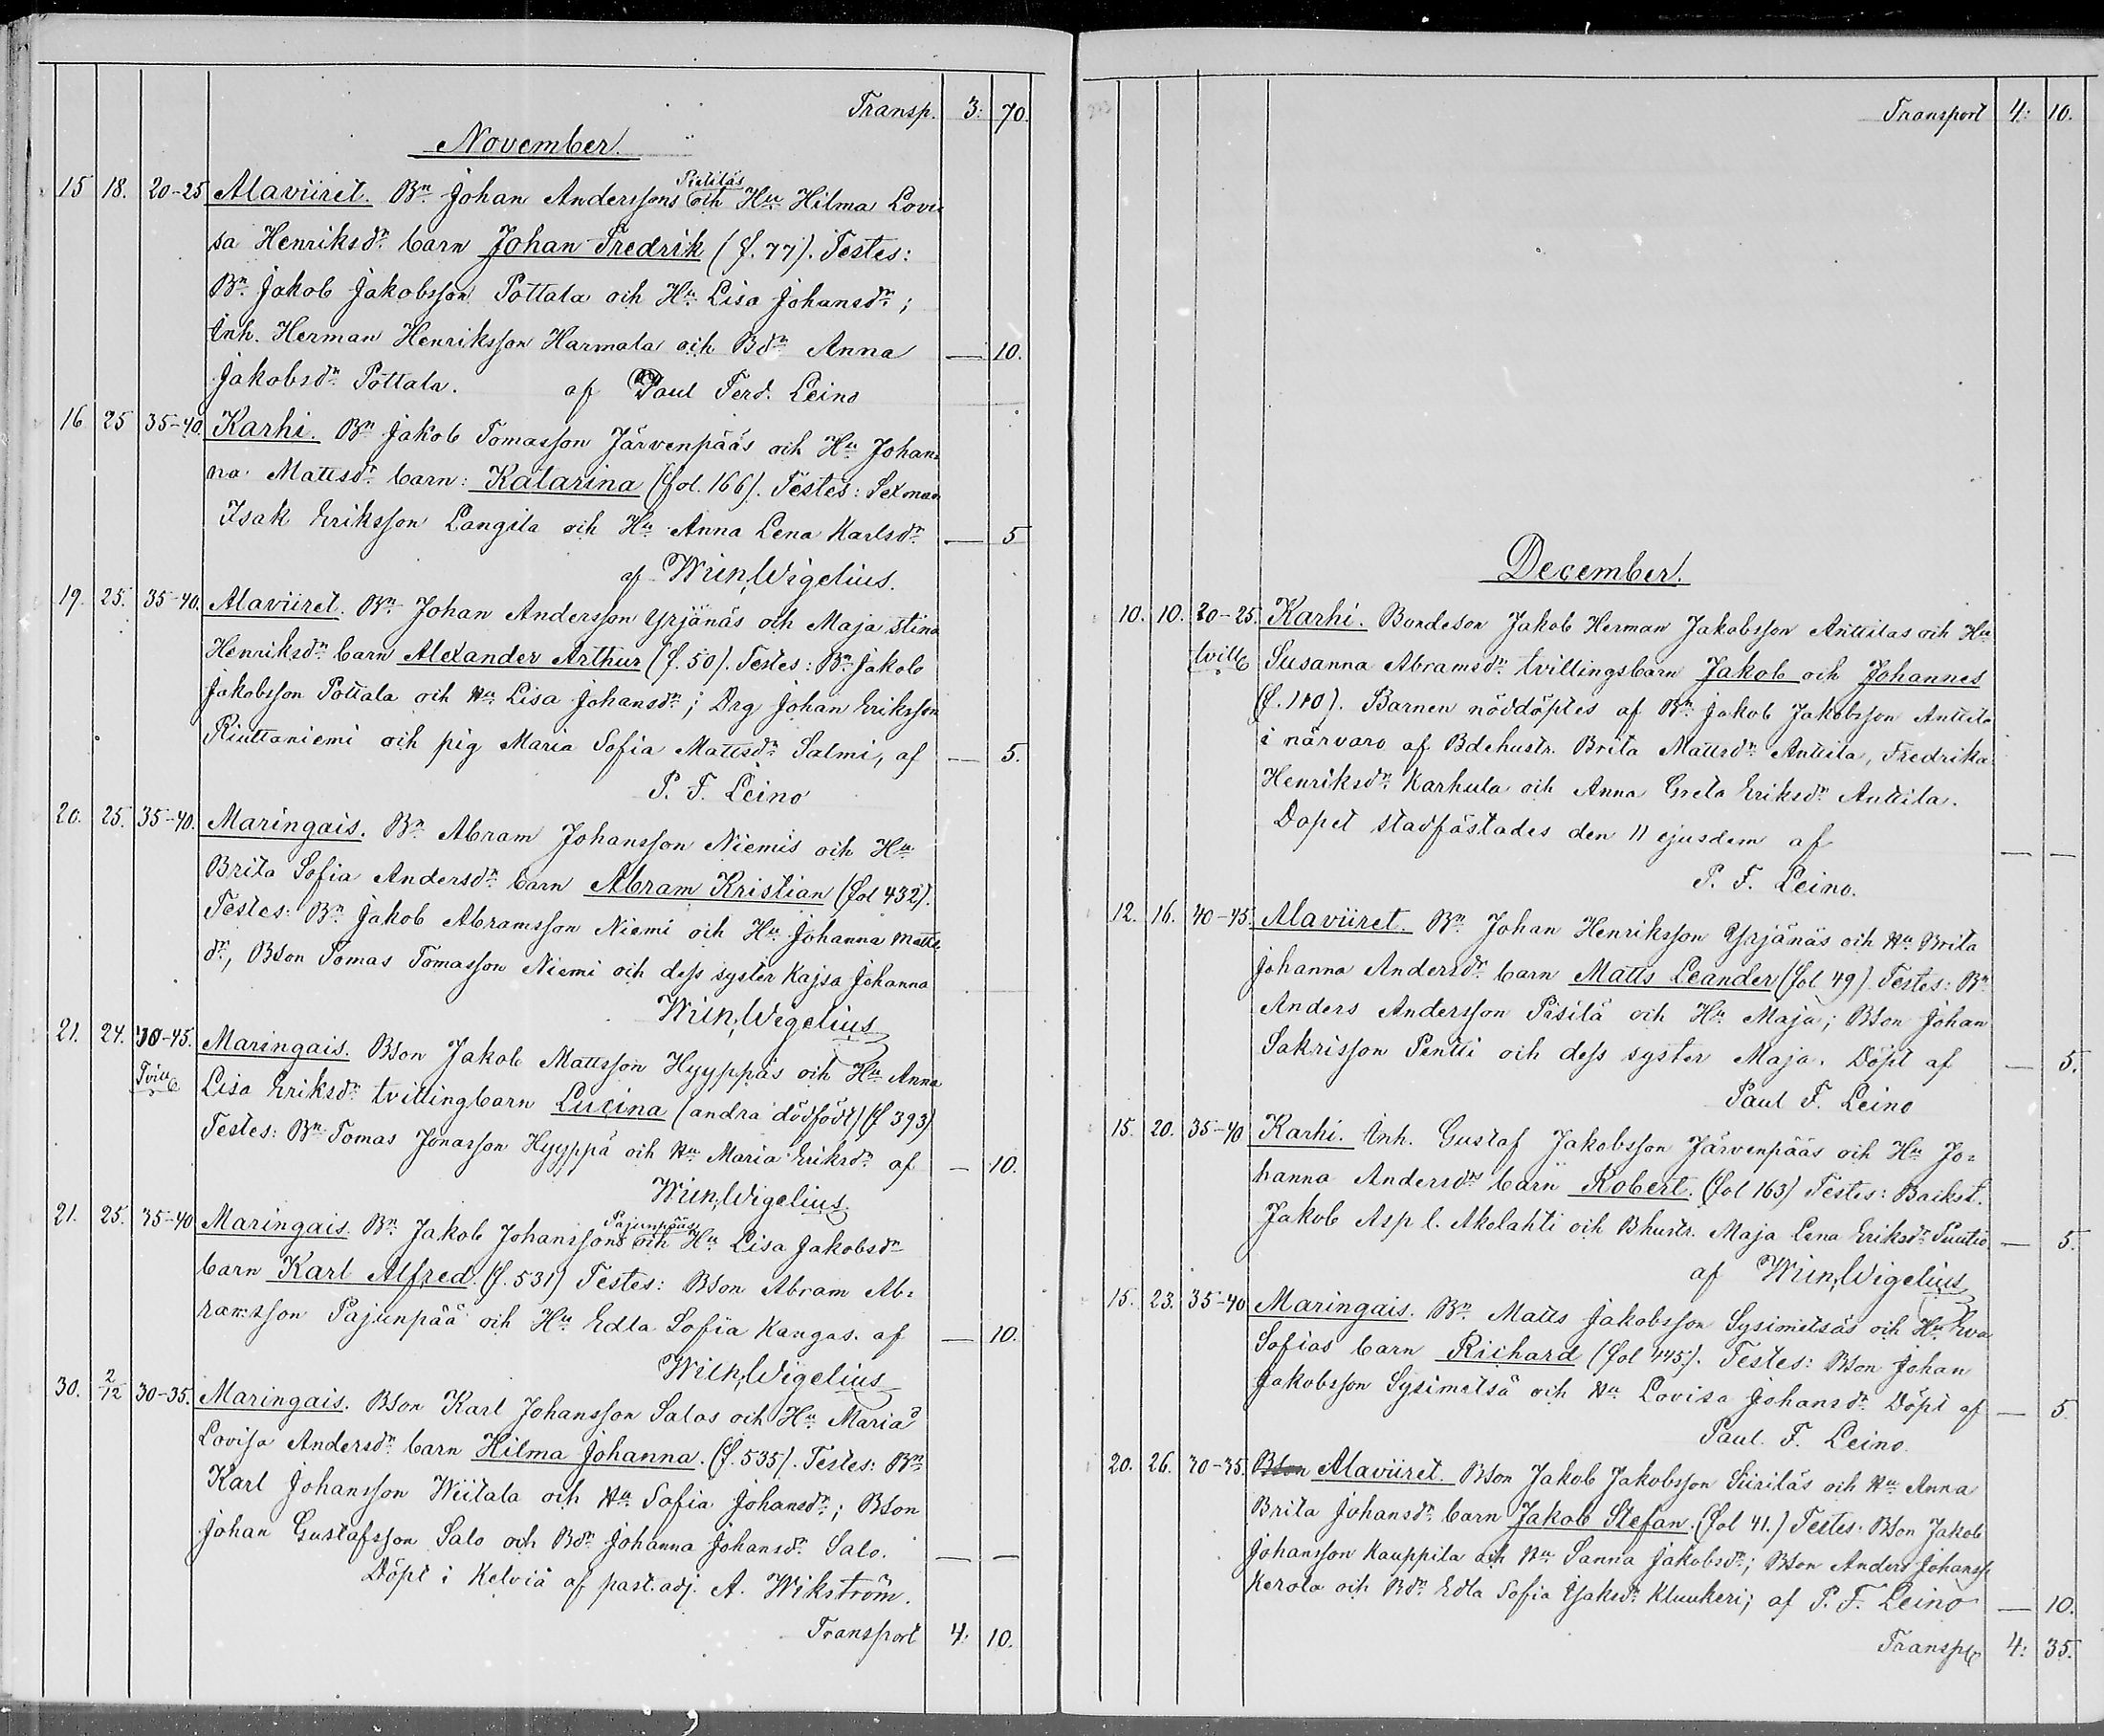 Transp. 3: 70.
November.
15 18. 20-25 Alaviiret. Bn Johan Anderssons Pistiläs och Hu Hilma Lovi
sa Henriksdr barn Johan Fredrik (f. 77). Testes:
Bn Jakob Jakobsson Pottala och Hu Lisa Johansdr;
Inh. Herman Henriksson Harmala och Bdr Anna — 10.
Jakobsdr Pottala. af Paul Ferd. Leino
16 25 35-40. Karhi. Bn Jakob Tomasson Järvenpääs och Hu Johan-
na Mattsdr barn: Katarina (fol. 166). Testes: Sexman
Isak Eriksson Langila och Hu Anna Lena Karlsdr — 5
af Wigelius.
19. 25. 35-40. Alaviiret. Bn Johan Andersson Yrjänäs och Maja Stina
Henriksdr barn Alexander Arthur (f. 50). Testes: Bn Jakob
Jakobsson Pottala och Hu Lisa Johansdr; Drg Johan Eriksson
Riuttaniemi och pig Maria Sofia Mattsdr Salmi, af — 5.
P. F. Leino
20. 25. 35-40. Maringais. Bn Abram Johansson Niemis och Hu
Brita Sofia Andersdr barn Abram Kristian (fol 432).
Testes: Bn Jakob Abramsson Niemi och Hu Johanna Matts
dr, Bson Tomas Tomasson Niemi och dess syster Kajsa Johanna
Wigelius
21. 24. 40-45. Maringais. Bson Jakob Mattsson Hyyppäs och Hu Anna
Tvill Lisa Eriksdr tvillingbarn Lucina (andra dödfödt) (f 393)
Testes: Bn Tomas Jonasson Hyyppä och Hu Maria Eriksdr af — 10.
Wigelius
21. 25. 35-40 Maringais. Bn Jakob Johanssons Pajunpääs och Hu Lisa Jakobsdr
barn Karl Alfred. (f. 531) Testes: Bson Abram Ab-
ramsson Pajunpää och Hu Edla Sofia Kangas. af — 10.
Wigelius
30. 2/12 30-35. Maringais. Bson Karl Johansson Salos och Hu Maria
Lovisa Andersdr barn Hilma Johanna. (f. 535). Testes: Bn
Karl Johansson Wiitala och Hu Sofia Johansdr; Bson
Johan Gustafsson Salo och Bdr Johanna Johansdr Salo. — —
Döpt i Kelviä af past. adj. A. Wikström.
Transport 4: 10.
Transport 4: 10.
December.
10. 10. 20-25. Karhi. Bondeson Jakob Herman Jakobsson Anttilas och Hu
tvill Susanna Abramsdr tvillingsbarn Jakob och Johannes
(f. 140). Barnen nöddöptes af Bn Jakob Jakobsson Anttila
i närvaro af Bdehustr. Brita Mattsdr Anttila, Fredrika
Henriksdr Karhula och Anna Greta Eriksdr Anttila.
Dopet stadfästades den 11 ejusdem af — —
P. F. Leino.
12. 16. 40-45. Alaviiret. Bn Johan Henriksson Yrjänäs och Hu Brita
Johanna Andersdr barn Matts Leander (fol 49) Testes: Bn
Anders Andersson Pisilä och Hu Maja; Bson Johan
Sakrisson Pentti och dess syster Maja. Döpt af — 5.
Paul F. Leino
15. 20. 35-40 Karhi. Inh. Gustaf Jakobsson Järvenpääs och Hu Jo-
hanna Andersdrs barn Robert. (fol 163) Testes:
Jakob Asp l. Akolahti och Bhustr. Maja Lena Eriksdr — 5.
af Wigelius
15. 23. 35-40 Maringais. Bn Matts Jakobsson Sysimetsäs och Hu Eva
Sofias barn Richard (fol 445). Testes: Bson Johan
Jakobsson Sysimetsä och Hu Lovisa Johansdr Döpt af — 5.
Paul. F. Leino.
20. 26. 30-35. Bson Alaviiret. Bson Jakob Jakobsson Siiriläs och Hu Anna
Brita Johansdr barn Jakob Stefan. (fol 41.) Testes: Bson Jakob
Johansson Kauppila och Hu Sanna Jakobsdr; Bson Anders Johanss
Kerola och Bdr Edla Sofia Isaksdr Kluukeri; af P. F. Leino — 10.
Transp 4: 35.